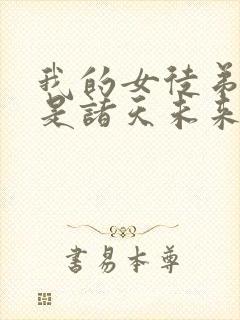 我的女徒弟
是諸天未来
書易本尊